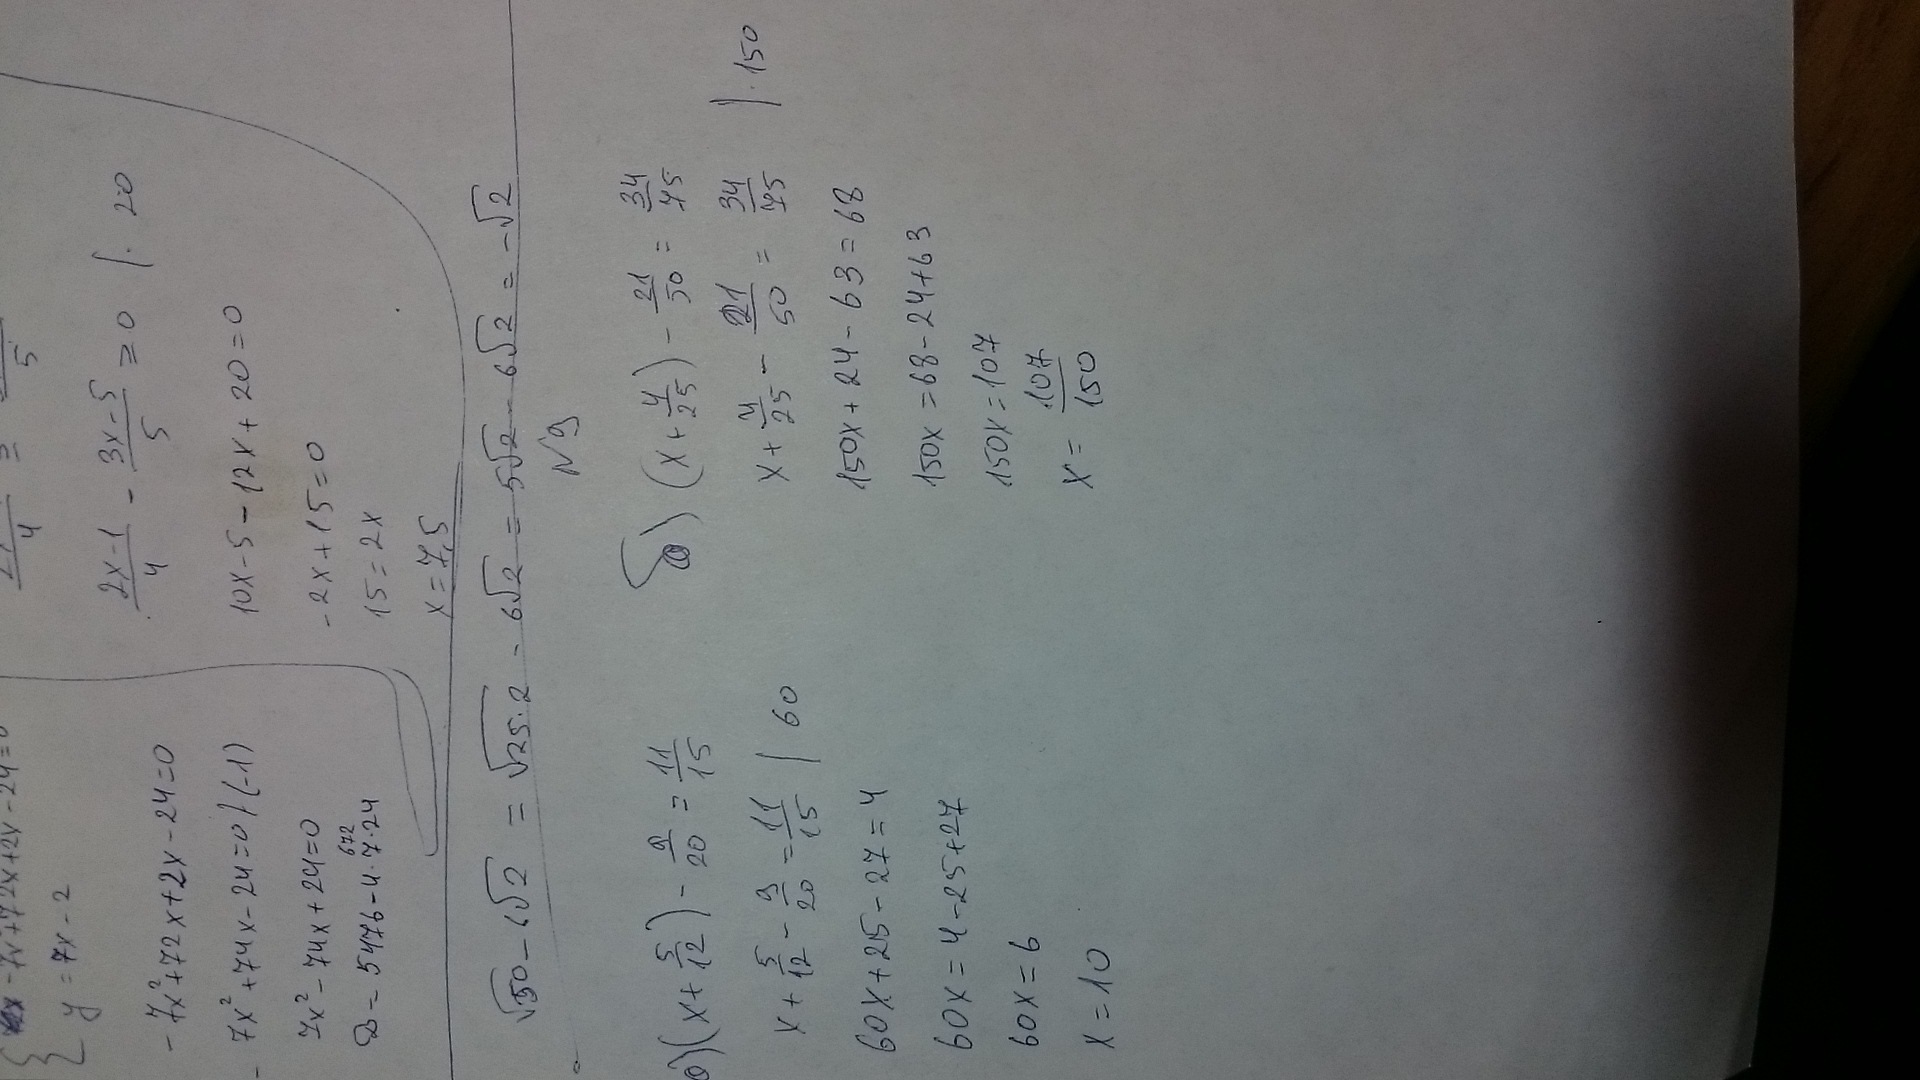 y = 7x - 2
- 7x² + 72x + 2x - 24 = 0
- 7x² + 74x - 24 = 0 | (-1)
7x² - 74x + 24 = 0
672
D = 5476 - 4 · 7 · 24
4 5
2x-1/4 - 3x-5/5 ≥ 0 | · 20
10x - 5 - 12x + 20 = 0
- 2x + 15 = 0
15 = 2x
x = 7,5
√50 - 6√2 = √25·2 - 6√2 = 5√2 - 6√2 = -√2
√9
а) (x + 5/12) - 9/20 = 11/15
x + 5/12 - 9/20 = 11/15 | 60
60x + 25 - 27 = 4
60x = 4 - 25 + 27
60x = 6
x = 10
б) (x + 4/25) - 21/50 = 34/75
x + 4/25 - 21/50 = 34/75 | · 150
150x + 24 - 63 = 68
150x = 68 - 24 + 63
150x = 107
x = 107/150